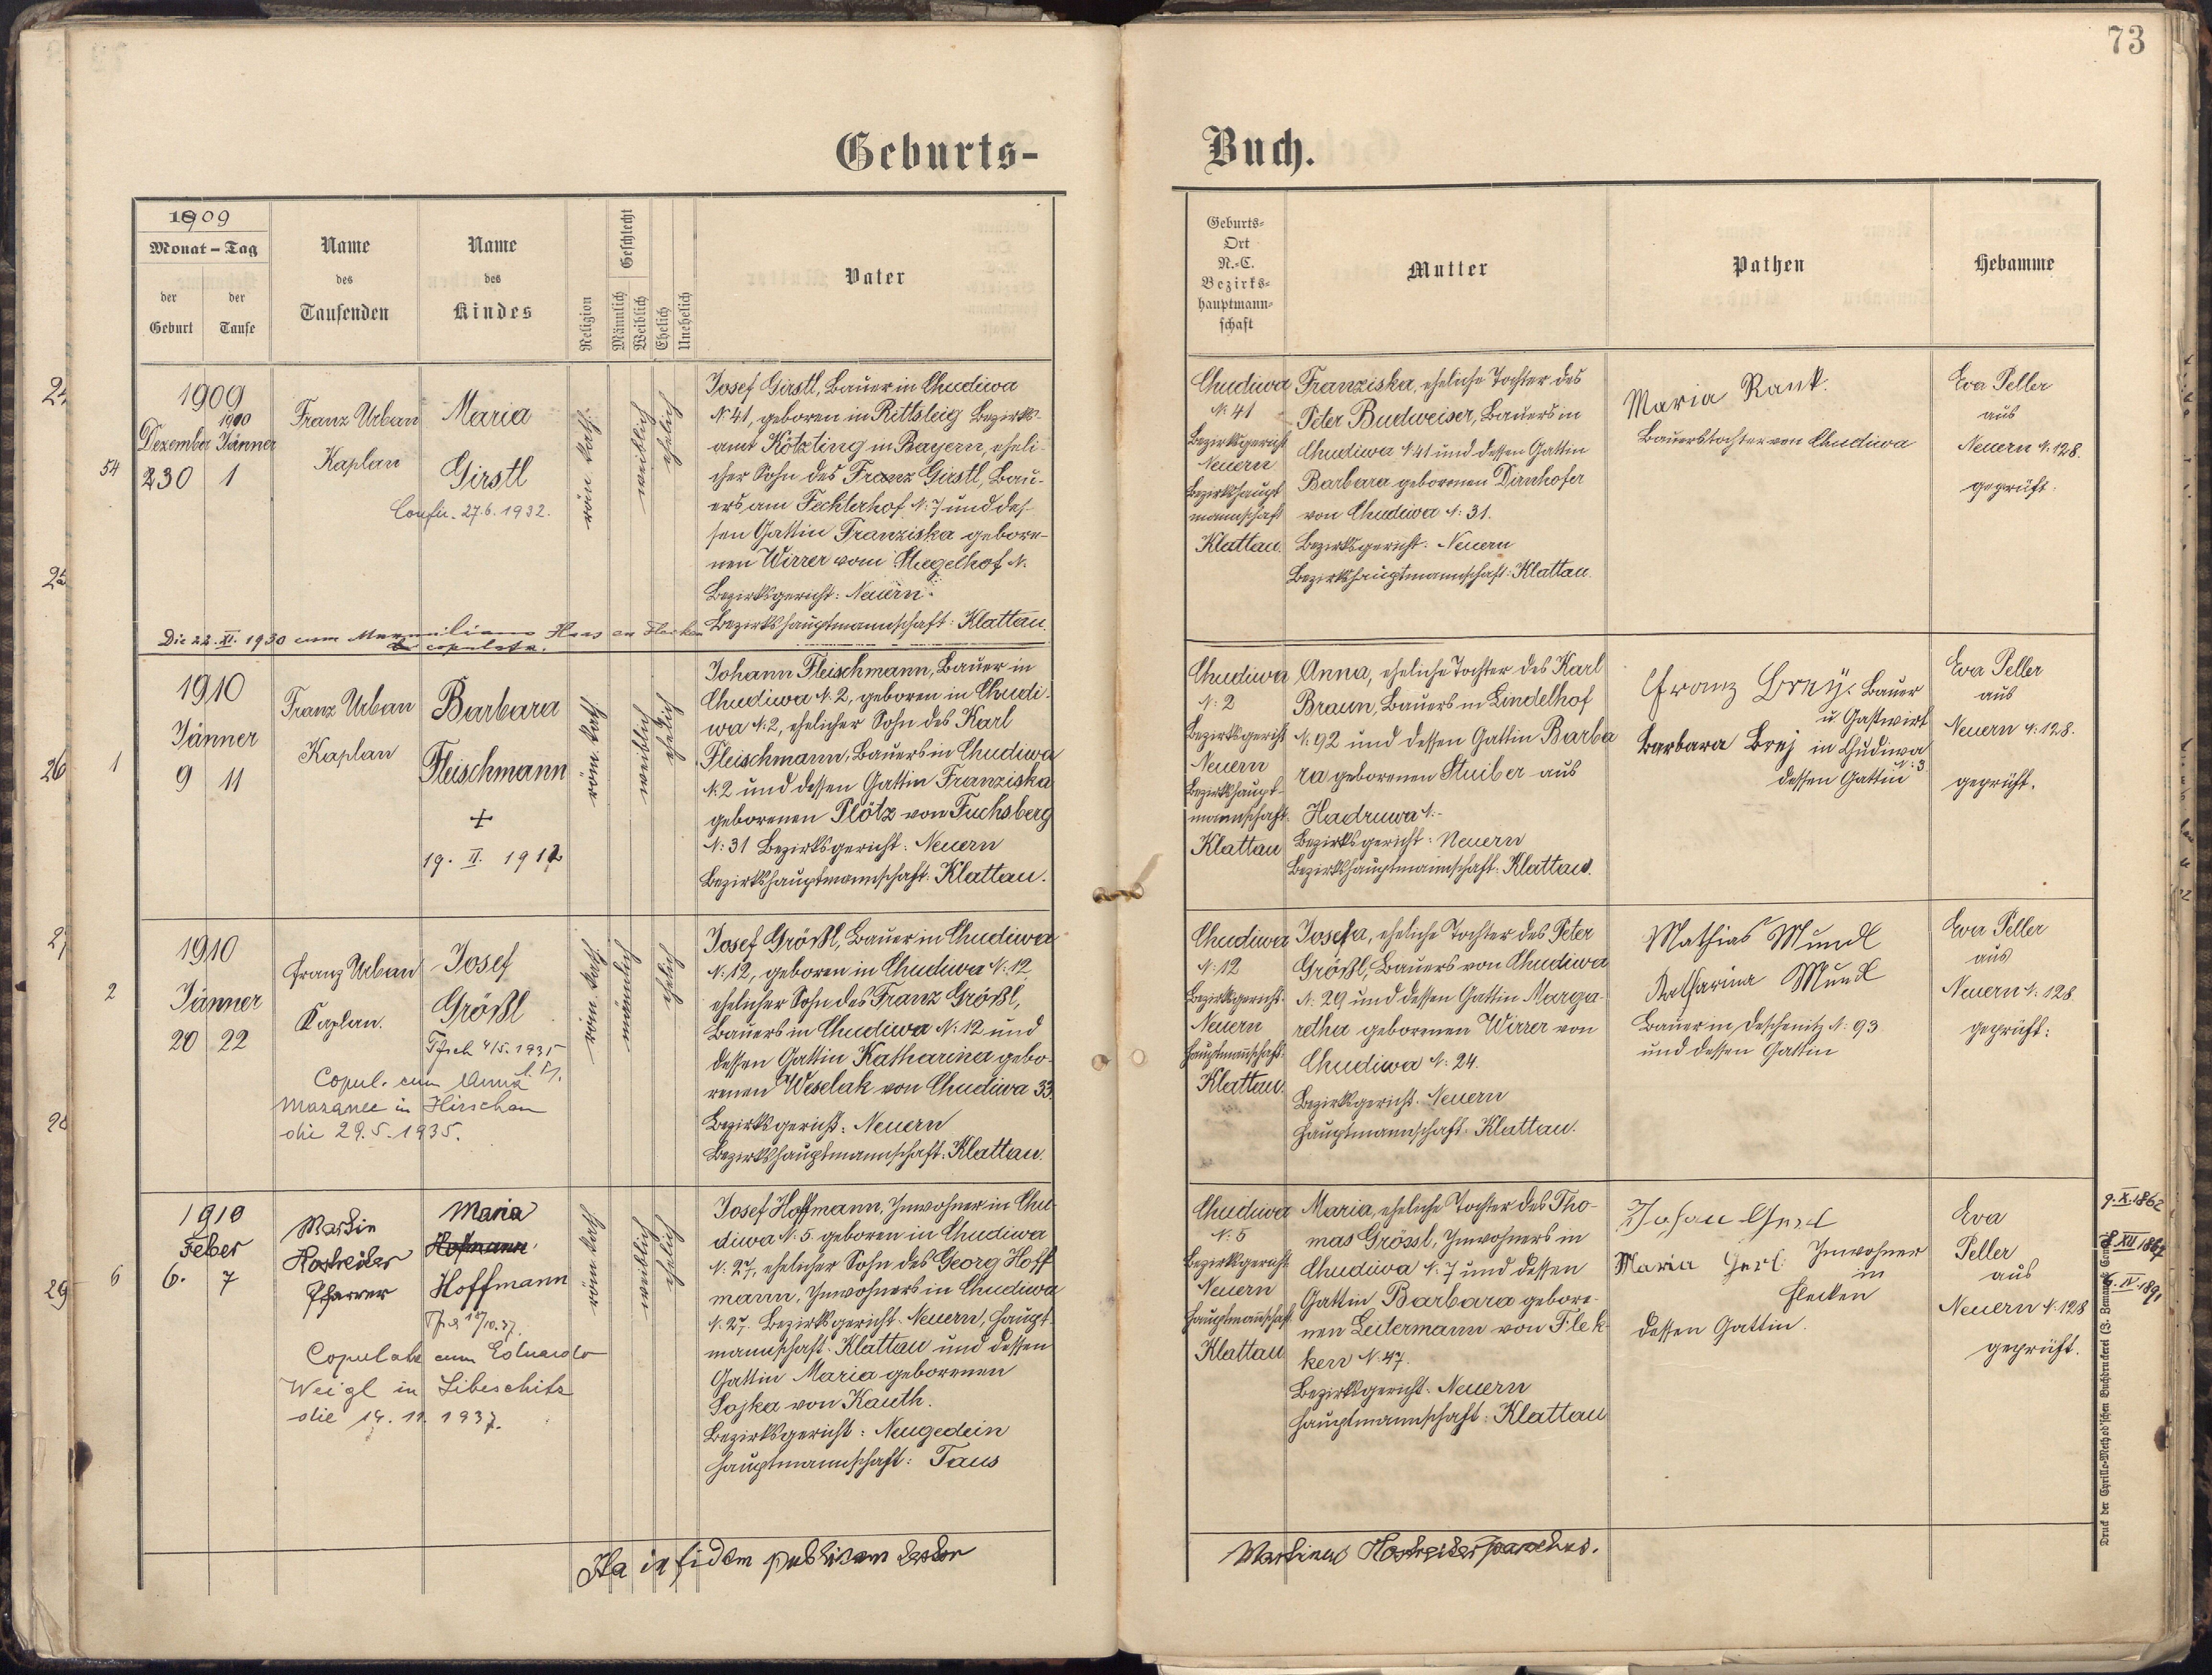 73
Geburts-
Buch.
1909
Monat – Tag
der Geburt
der Taufe
Name
des
Taufenden
Name
des
Kindes
Religion
Geschlecht
Männlich
Weiblich
Ehelich
Unehelich
Vater
Geburts-
Ort
N.-C.
Bezirks-
hauptmann-
schaft
Mutter
Pathen
Hebamme
54
1909
1910
Dezember Jänner
30 1
Franz Urban
Kaplan
Maria
Girstl
27.6.1932.
röm. kath.
weiblich
ehelich
Josef Girstl, Bauer in Chudiwa
N: 41, geboren in Rittsteig Bezirks-
amt Kötzting in Bayern, eheli-
cher Sohn des Franz Girstl, Bau-
ers am Fechterhof N: 7 und des-
sen Gattin Franziska gebore-
nen Wirrer vom Stegelhof N.
Bezirksgericht: Neuern.
Bezirkshauptmannschaft: Klattau.
Die 22. XI. 1930 cum Maxmiliano Haas
copulata.
Chudiwa
N: 41
Bezirksgericht
Neuern
Bezirkshaupt
mannschaft
Klattau.
Franziska, eheliche Tochter des
Peter Budweiser, Bauers in
Chudiwa N: 41 und dessen Gattin
Barbara geborenen Dirnhofer
von Chudiwa N: 31.
Bezirksgericht: Neuern
Bezirkshauptmannschaft: Klattau.
Maria Rank.
Bauerstochter von Chudiwa
Eva Peller
aus
Neuern N: 128.
geprüft.
1
1910
Jänner
9 11
Franz Urban
Kaplan
Barbara
Fleischmann
+
19. II. 1912
röm. kath
weiblich
ehelich
Johann Fleischmann, Bauer in
Chudiwa N: 2, geboren in Chudi-
wa N: 2, ehelicher Sohn des Karl
Fleischmann, Bauers in Chudiwa
N: 2 und dessen Gattin Franziska
geborenen Plötz von Fuchsberg
N: 31 Bezirksgericht: Neuern
Bezirkshauptmannschaft: Klattau.
Chudiwa
N: 2
Bezirksgericht
Neuern
Bezirkshaupt-
mannschaft.
Klattau
Anna, eheliche Tochter des Karl
Braun, Bauers in Lindelhof
N: 92 und dessen Gattin Barba
ra geborenen Stuiber aus
Hadruwa N: -
Bezirksgericht: Neuern
Bezirkshauptmannschaft: Klattau.
Franz Brej. Bauer
u Gastwirt
Barbara Brej in Chudiwa
N: 3
dessen Gattin
Eva Peller
aus
Neuern N: 128.
geprüft.
2
1910
Jänner
20 22
Franz Urban
Kaplan.
Josef
Größl
4/5. 1935
Copul. cum Anna
Mazanec in Hirschau
die 29.5.1935.
röm. kath.
männlich
ehelich
Josef Größl, Bauer in Chudiwa
N: 12, geboren in Chudiwa N: 12,
ehelicher Sohn des Franz Größl,
Bauers in Chudiwa N: 12 und
dessen Gattin Katharina gebo-
renen Weselak von Chudiwa 33.
Bezirksgericht: Neuern
Bezirkshauptmannschaft: Klattau.
Chudiwa
N: 12
Bezirksgericht
Neuern
Hauptmannschaft:
Klattau.
Josefa, eheliche Tochter des Peter
Größl, Bauers von Chudiwa
N: 29 und dessen Gattin Marga-
retha geborenen Wirrer von
Chudiwa N: 24.
Bezirksgericht. Neuern
Hauptmannschaft: Klattau.
Mathias Mundl
Katharina Mundl
Bauer in Deschenitz N: 93
und dessen Gattin
Eva Peller
aus
Neuern N: 128.
geprüft:
6
1910
Feber
6. 7
Martin
Hostreiter
Pfarrer
Maria
Hofmann
Hoffmann
Copulata cum Eduardo
Weigl in Libeschitz
die 14. 11. 1937.
röm kath
weiblich
ehelich
Josef Hoffmann, Inwohner in Chu-
diwa N: 5. geboren in Chudiwa
N: 27, ehelicher Sohn des Georg Hoff
mann, Inwohners in Chudiwa
N. 27. Bezirksgericht. Neuern, Haupt
mannschaft: Klattau und dessen
Gattin Maria geborenen
Sojka von Kauth.
Bezirksgericht: Neugedein
Hauptmannschaft: Taus
Chudiwa
N: 5
Bezirksgericht
Neuern
Hauptmannschaft
Klattau
Maria, eheliche Tochter des Tho-
mas Grössl, Inwohners in
Chudiwa N: 7 und dessen
Gattin Barbara gebore-
nen Leitermann von Flek-
ken N. 47.
Bezirksgericht: Neuern
Hauptmannschaft: Klattau
Johann Gerl
Maria Gerl Inwohner
in
Flecken
dessen Gattin.
Eva
Peller
aus
Neuern N: 128
geprüft.
9. X. 1862
XII 1867
IV. 1891
Ita in fidem publicam testor
Martinus Hostreiter parochus.